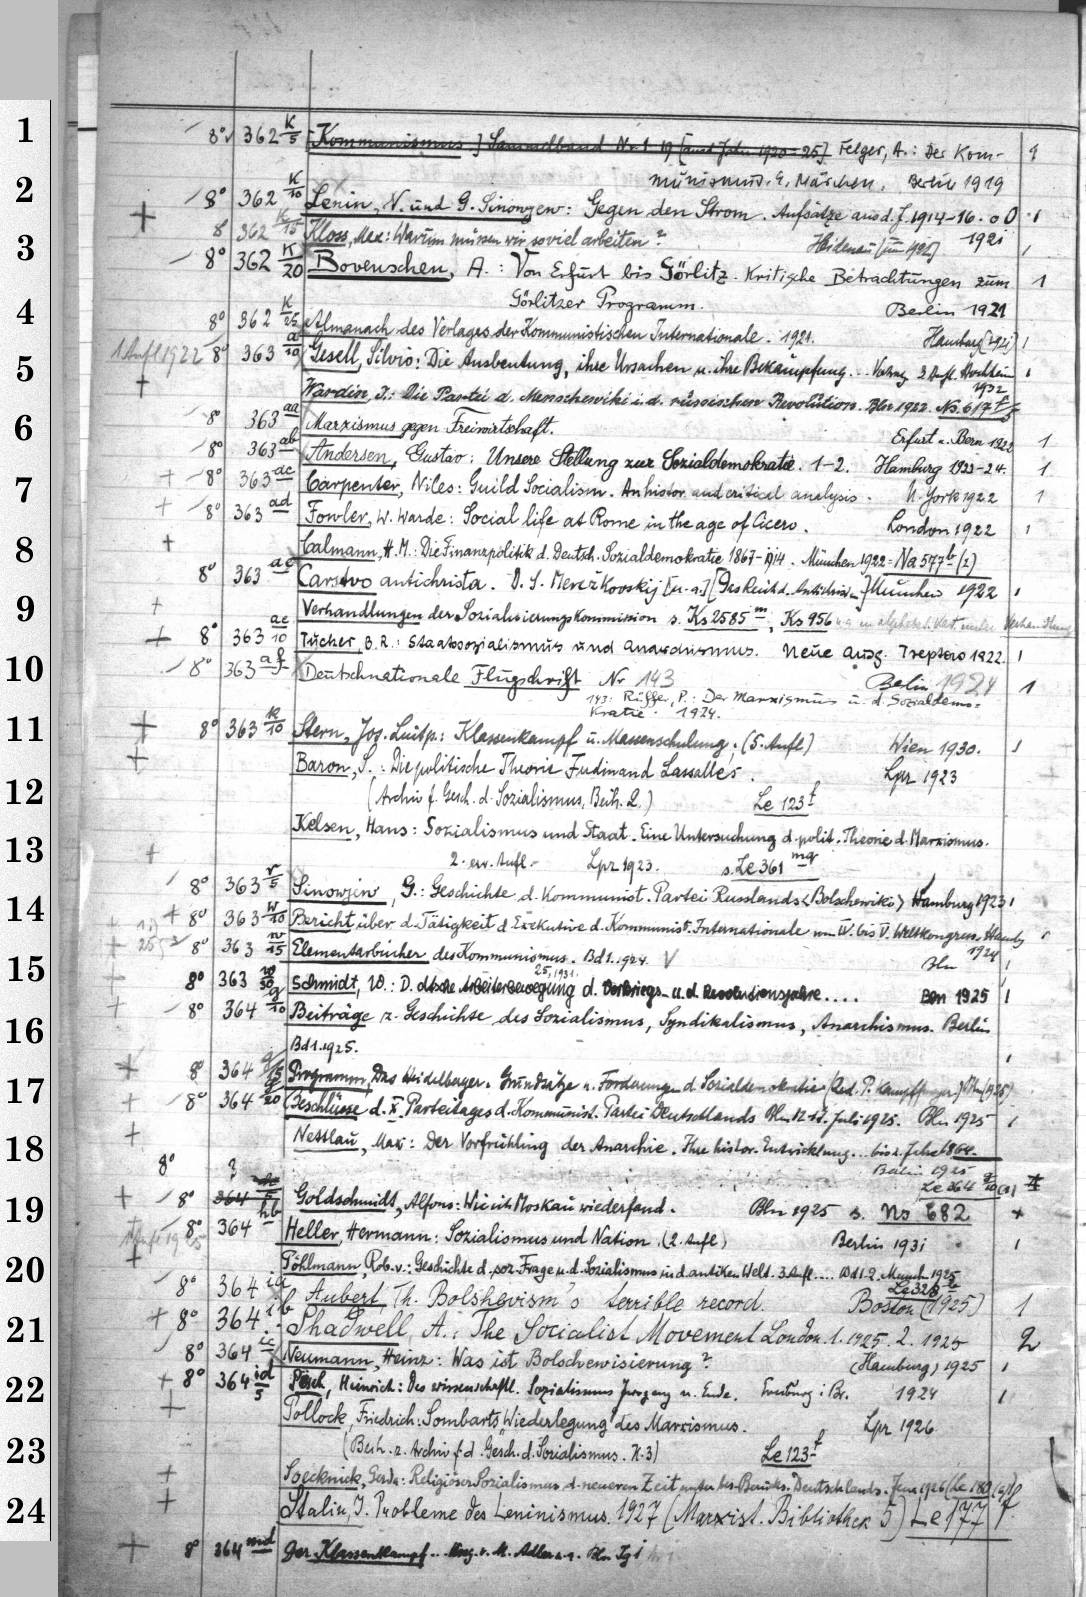 1
8° 362 K/5 [Kommunismus] Sammelband Nr 1-19 [aus d. Jahren 1920-25] Felger, A.: Der Kom- 1
2
munismus. E. Märchen. Berlin 1919
8° 362 K/10 Lenin, N. und G. Sinowjew: Gegen den Strom. Aufsätze aus d. J. 1914-16. 1
1921
8 362 K/15 Kloss, Max: Warum müssen wir soviel arbeiten? Hidenau [um 1921] 1
3
8° 362 K/20 Bovenschen, A.: Von Erfurt bis Görlitz. Kritische Betrachtungen zum 1
Görlitzer Programm. Berlin 1921
4
8° 362 K/25 Almanach des Verlages der Kommunistischen Internationale. 1921. Hamburg [1921] 1
1 Aufl 1922 8° 363 a/10 Gesell, Silvio: Die Ausbeutung, ihre Ursachen u. ihre Bekämpfung. Vortrag 2 Aufl.
5
1932
Wardin, I.: Die Partei d. Menschewiki i. d. russischen Revolution. Bln 1922. Ns 617 f/5
6
8° 363 aa Marxismus gegen Freiwirtschaft. Erfurt u. Bern 1922 1
8° 363 ab Andersen, Gustav: Unsere Stellung zur Sozialdemokratie. 1-2. Hamburg 1923-24. 1
7
+ 8° 363 ac Carpenter, Niles: Guild Socialism. An histor. and critical analysis. N. York 1922 1
+ 8° 363 ad Fowler, W. Warde: Social life at Rome in the age of Cicero. London 1922 1
8
+ Calmann, H. M.: Die Finanzpolitik d. Deutsch. Sozialdemokratie 1867-1914. München 1922 = Na 577 b (2)
8° 363 ae Carstvo antichrista. D. S. Merežkovskij [u. a.] [Das Reich d. Antichrist] München 1922 1
9
+ Verhandlungen der Sozialisierungskommission s. Ks 2585 m, Ks 956
+ 8° 363 ae/10 Tucher, B. R.: Staatssozialismus und Anarchismus. Neue Ausg. Treptow 1922. 1
10
8° 363 af Deutschnationale Flugschrift Nr 143 Berlin 1924 1
143: Rüffer, P.: Der Marxismus u. d. Sozialdemo-
kratie. 1924.
11
+ 8° 363 k/10 Stern, Jos. Luitp.: Klassenkampf u. Massenschulung. (5. Aufl) Wien 1930. 1
+ Baron, S.: Die politische Theorie Ferdinand Lassalle's. Lpz 1923
12
(Archiv f. Gesch. d. Sozialismus, Beih. 2.) Le 123 f
Kelsen, Hans: Sozialismus und Staat. Eine Untersuchung d. polit. Theorie d. Marxismus.
13
+ 2. erw. Aufl. Lpz 1923. s. Le 361 mg
8° 363 r/5 Sinowjew, G.: Geschichte d. Kommunist. Partei Russlands <Bolschewiki> Hamburg 1923 1
14
+ 8° 363 w/10 Bericht über d. Tätigkeit d. Exekutive d. Kommunist. Internationale vom IV. bis V. Weltkongress. Hamb
1924
8° 363 w/15 Elementarbücher des Kommunismus. Bd 1. 1924. Bln 1
25, 1931.
15
8° 363 w/50 Schmidt, W.: D. dtsche Arbeiterbewegung d. Vorkriegs- u. d. Revolutionsjahre.... 1925 1
8° 364 g/10 Beiträge z. Geschichte des Sozialismus, Syndikalismus, Anarchismus. Berlin
16
Bd 1. 1925. 1
+ 8° 364 g/15 Programm, Das Heidelberger. Grundsätze u. Forderungen d. Sozialdemokratie
17
+ 8° 364 g/20 Beschlüsse d. X. Parteitages d. Kommunist. Partei Deutschlands Bln 12-17. Juli 1925. Bln 1925 1
+ Nettlau, Max: Der Vorfrühling der Anarchie. Ihre histor. Entwicklung... bis z. Jahre 1864.
18
8° ? Berlin 1925
Le 364 g/10 (1)
19
+ 8° 364 Goldschmidt, Alfons: Wie ich Moskau wiederfand. Bln 1925 s. Ns 682 +
8° 364 hb Heller, Hermann: Sozialismus und Nation. (2. Aufl) Berlin 1931 1
Pöhlmann, Rob. v.: Geschichte d. soz. Frage u. d. Sozialismus in d. antiken Welt. 3. Aufl.... Bd 1. 2. Münch 1925
20
Le 328
8° 364 ia Aubert, Th. Bolshevism's terrible record. Boston (1925) 1
+ 8° 364 ib Shadwell, A.: The Socialist Movement London. 1. 1925. 2. 1925 2
21
8° 364 ic Neumann, Heinz: Was ist Bolschewisierung? (Hamburg) 1925 1
22
+ 8° 364 id/5 Pesch, Heinrich: Des wissenschaftl. Sozialismus Irrgang u. Ende. Freiburg i Br. 1924 1
+ Pollock, Friedrich: Sombarts Wiederlegung des Marxismus. Lpz 1926
23
(Beih. z. Archiv f. d. Gesch. d. Sozialismus. H. 3) Le 123 f
+ Soecknick, Gerda: Religiöser Sozialismus d. neueren Zeit unter bes. Berücks. Deutschlands. Jena 1926
24
+ Stalin, J. Probleme des Leninismus. 1927 (Marxist. Bibliothek 5) Le 177 f.
+ 8 364 md Der Klassenkampf... Hrsg. v. M. Adler u. a. Bln Jg 1